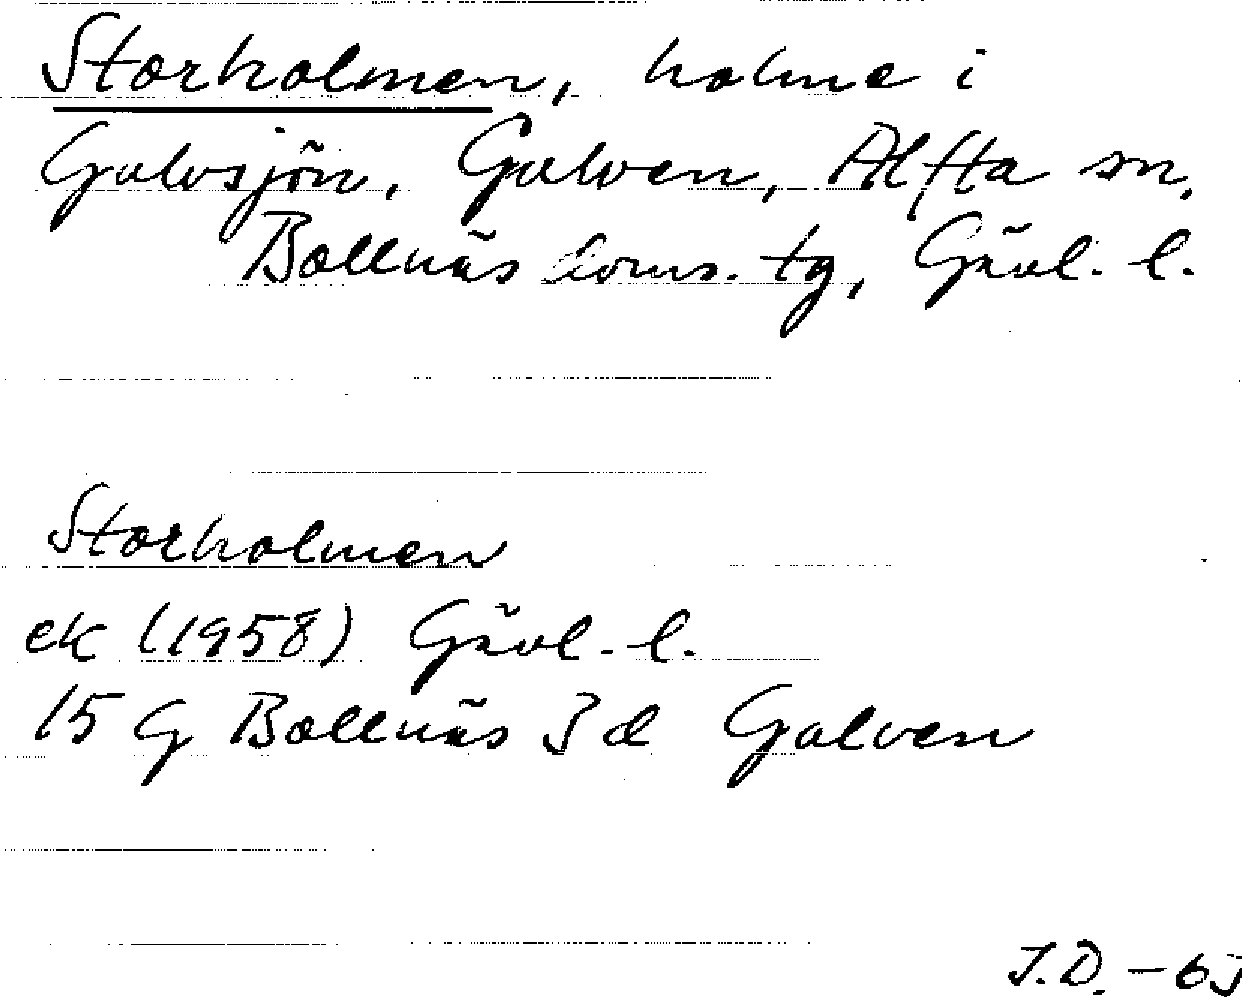 Storholmen, holme i
Galvsjön, Galven, Alfta sn,
Bollnäs doms. tg, Gävl. l.
Storholmen
ek (1958) Gävl. l.
15 G Bollnäs 3 d Galven
J.D. -65